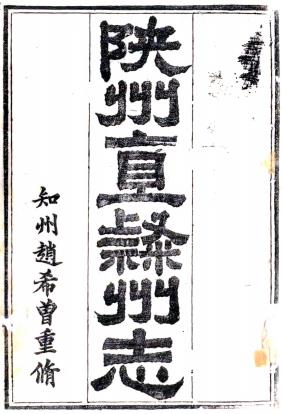 陜州直隸州志
知州趙希曾重脩